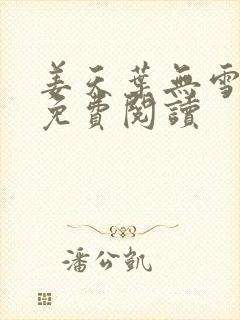 姜天葉無雪
免費閱讀
潘公凱